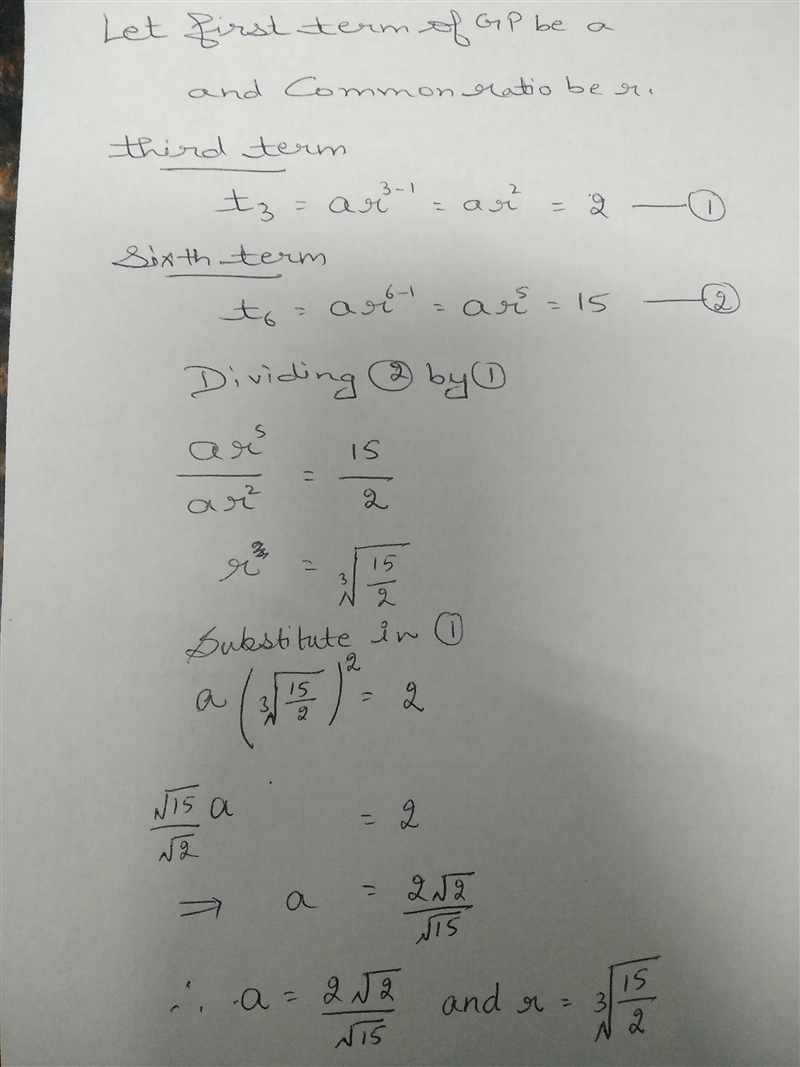 Let first term of GP be a
and Common ratio be r.
third term
t₃ = ar³⁻¹ = ar² = 2 — ①
Sixth term
t₆ = ar⁶⁻¹ = ar⁵ = 15 — ②
Dividing ② by ①
ar⁵/ar² = 15/2
r = ∛(15/2)
Substitute in ①
a(∛(15/2))² = 2
√15/√2 a = 2
⇒ a = 2√2/√15
∴ a = 2√2/√15 and r = ∛(15/2)